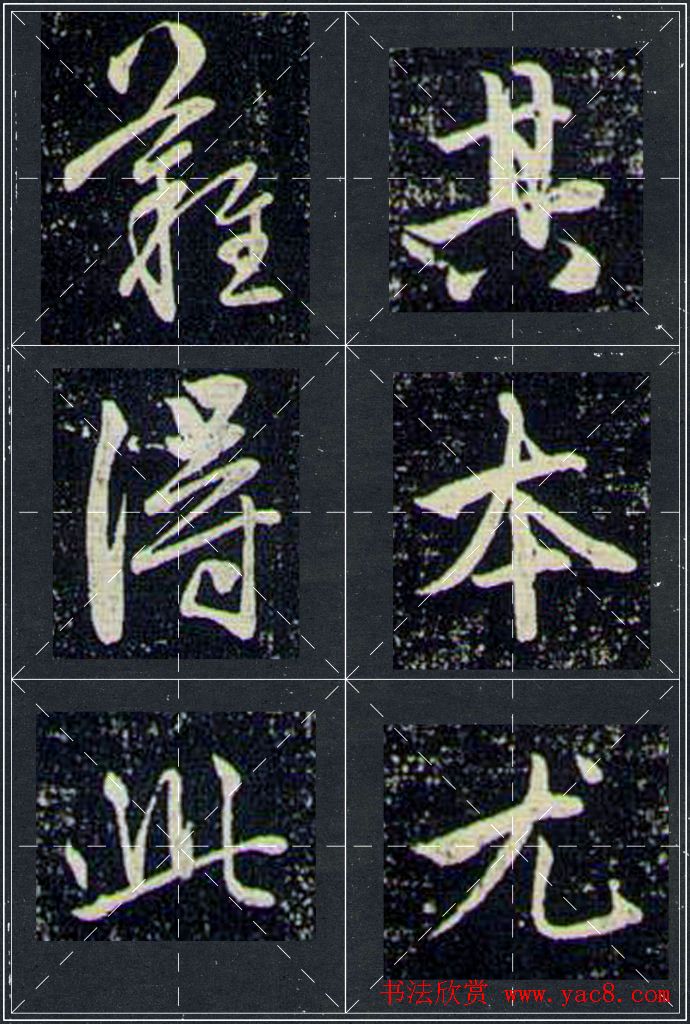 其本尤
難得此
书法欣赏 www.yac8.com